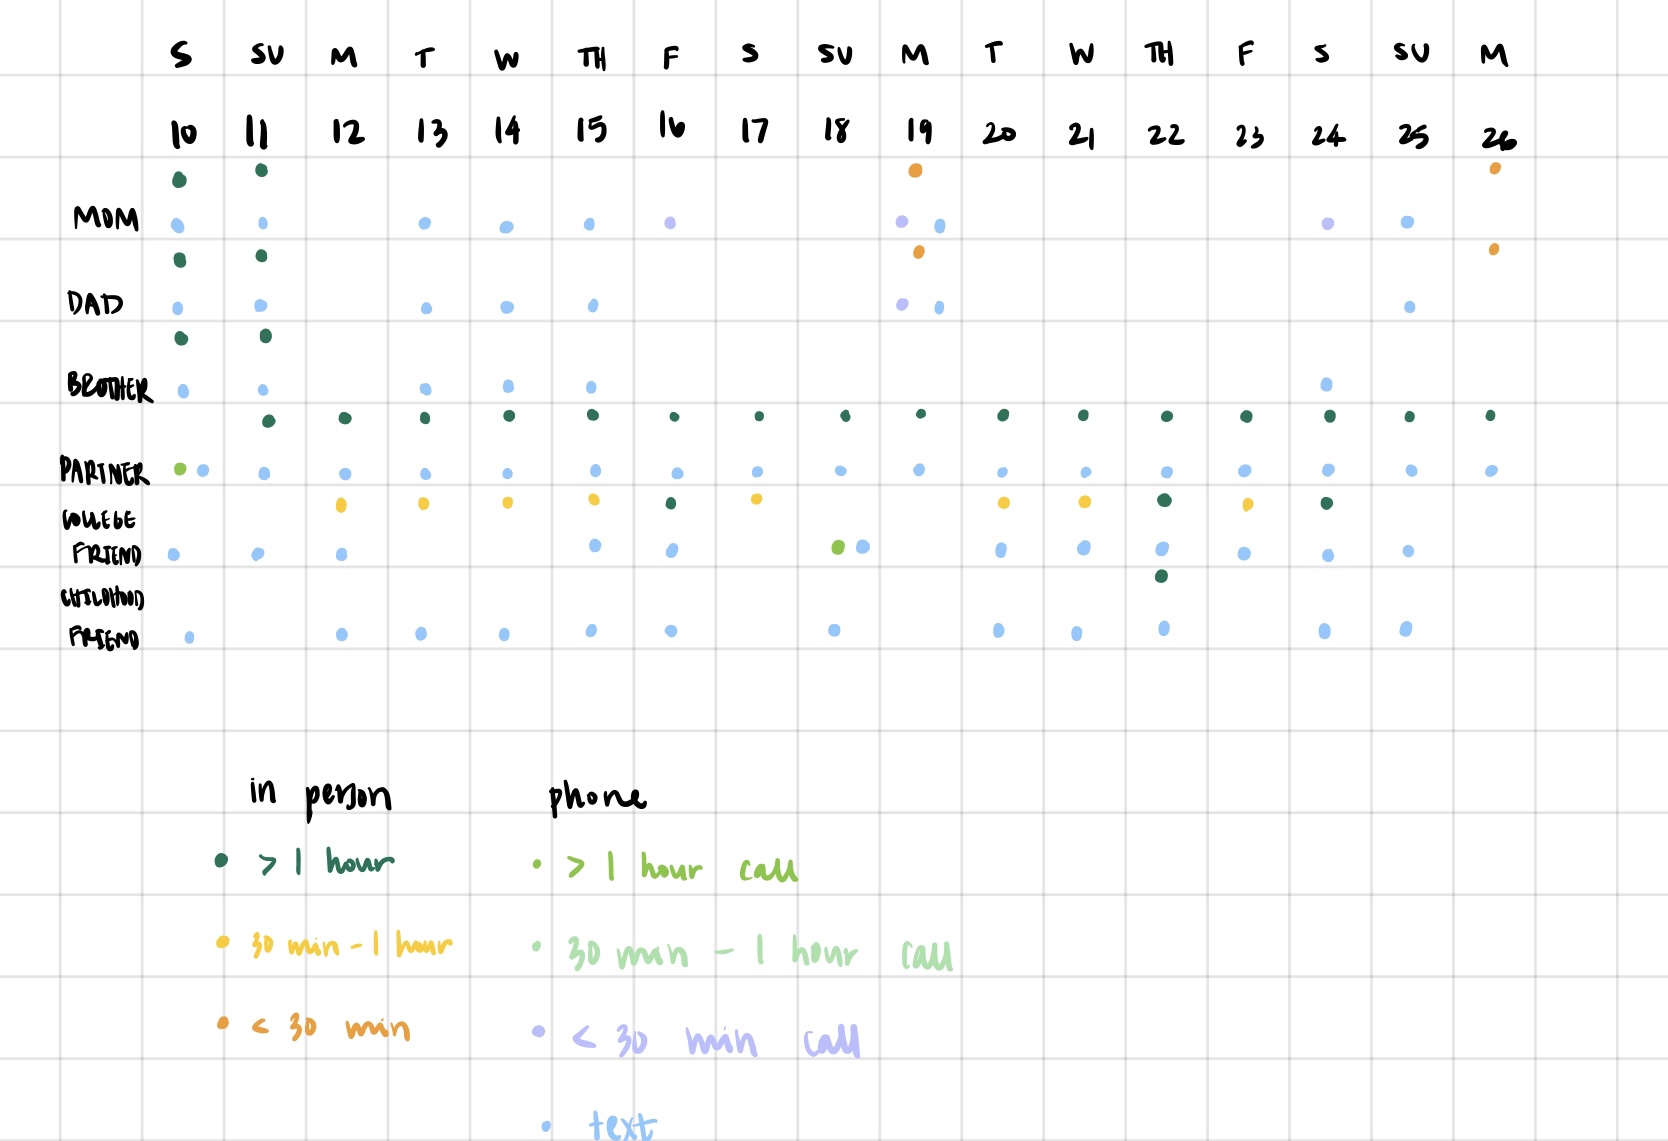 S SU M T W TH F S SU M T W TH F S SU M
10 11 12 13 14 15 16 17 18 19 20 21 22 23 24 25 26
MOM
DAD
BROTHER
PARTNER
COLLEGE
FRIEND
CHILDHOOD
FRIEND
in person phone
> 1 hour > 1 hour call
30 min - 1 hour 30 min - 1 hour call
< 30 min < 30 min call
text